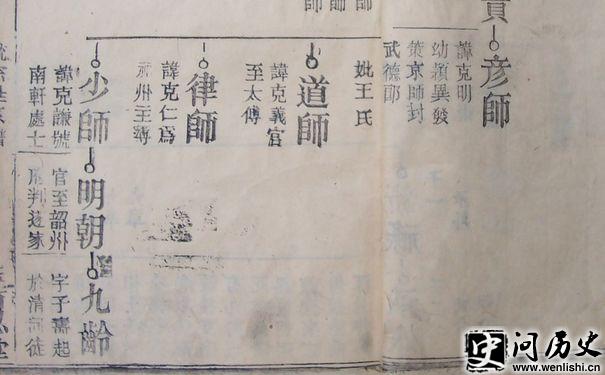 師
師
師
貴
彦師
諱克明
幼穎異發
策京師封
武德郎
妣王氏
道師
諱克義官
至太傅
律師
諱克仁為
州主簿
少師
諱克謙號
南軒處士
明朝
官至韶州
府判遂家
九齡
字子壽起
於清河徒
问历史
www.wenlishi.cn